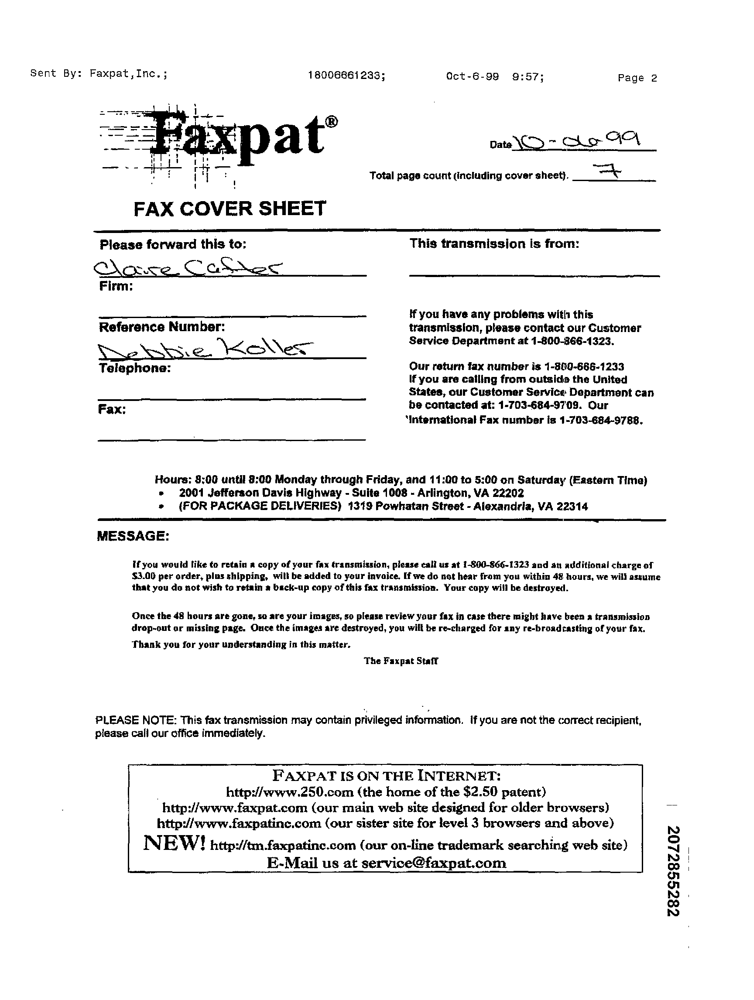 Sent By: Faxpat,Inc.; 18006661233; Oct-6-99 9:57; Page 2
Faxpat®
Date 10-06-99
Total page count (including cover sheet). 7
FAX COVER SHEET
Please forward this to:
Claire
Firm:
Reference Number:
Debbie Koller
Telephone:
Fax:
This transmission is from:
If you have any problems with this
transmission, please contact our Customer
Service Department at 1-800-866-1323.
Our return fax number is 1-800-666-1233
If you are calling from outside the United
States, our Customer Service Department can
be contacted at: 1-703-684-9709. Our
International Fax number is 1-703-684-9788.
Hours: 8:00 until 8:00 Monday through Friday, and 11:00 to 5:00 on Saturday (Eastern Time)
• 2001 Jefferson Davis Highway - Suite 1008 - Arlington, VA 22202
• (FOR PACKAGE DELIVERIES) 1319 Powhatan Street - Alexandria, VA 22314
MESSAGE:
If you would like to retain a copy of your fax transmission, please call us at 1-800-866-1323 and an additional charge of
$3.00 per order, plus shipping, will be added to your invoice. If we do not hear from you within 48 hours, we will assume
that you do not wish to retain a back-up copy of this fax transmission. Your copy will be destroyed.
Once the 48 hours are gone, so are your images, so please review your fax in case there might have been a transmission
drop-out or missing page. Once the images are destroyed, you will be re-charged for any re-broadcasting of your fax.
Thank you for your understanding in this matter.
The Faxpat Staff
PLEASE NOTE: This fax transmission may contain privileged information. If you are not the correct recipient,
please call our office immediately.
FAXPAT IS ON THE INTERNET:
http://www.250.com (the home of the $2.50 patent)
http://www.faxpat.com (our main web site designed for older browsers)
http://www.faxpatinc.com (our sister site for level 3 browsers and above)
NEW! http://tm.faxpatinc.com (our on-line trademark searching web site)
E-Mail us at service@faxpat.com
2072855282